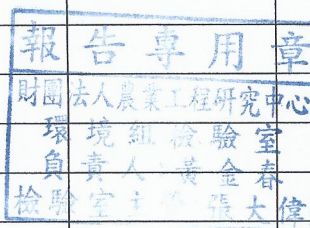 報告專用章
財團法人農業工程研究中心
環境組檢驗室
負責人 黃金春
檢驗室主 張大偉